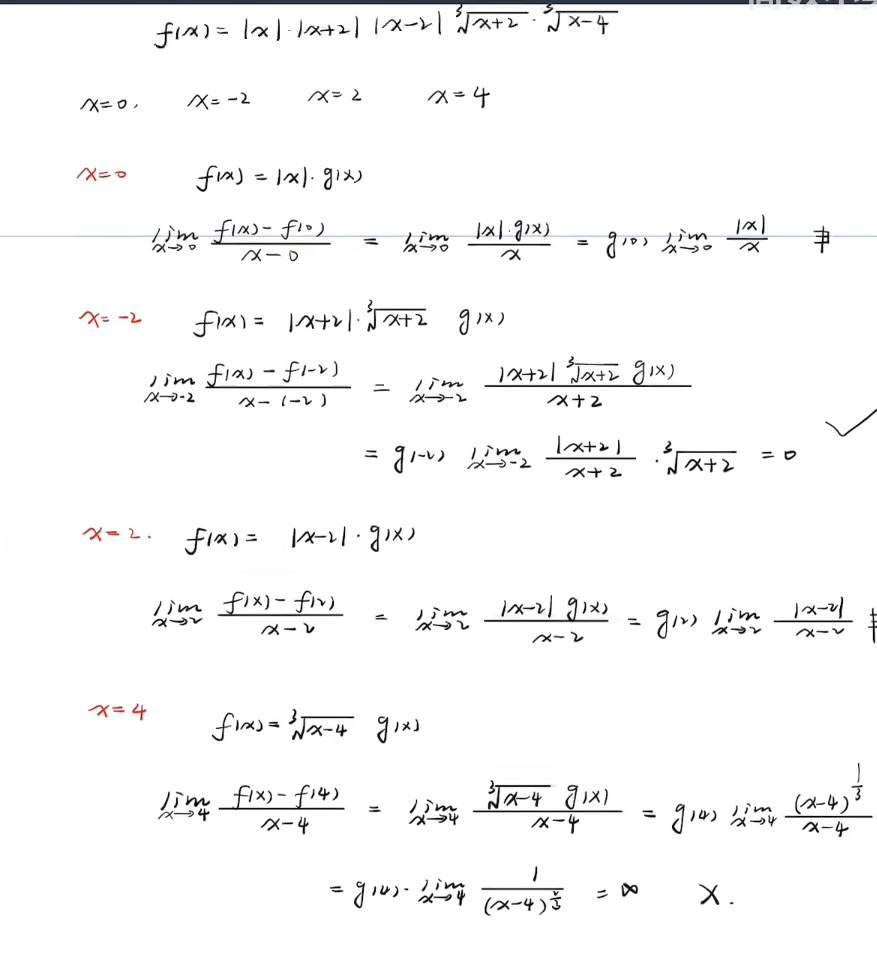 f(x) = |x|·|x+2| |x-2| ∛(x+2) · ∛(x-4)
x=0. x=-2 x=2 x=4
x=0 f(x) = |x|·g(x)
lim x→0 (f(x)-f(0))/(x-0) = lim x→0 (|x|·g(x))/x = g(0) lim x→0 |x|/x ∄
x=-2 f(x) = |x+2|·∛(x+2) g(x)
lim x→-2 (f(x)-f(-2))/(x-(-2)) = lim x→-2 (|x+2| ∛(x+2) g(x))/(x+2)
= g(-2) lim x→-2 |x+2|/(x+2) · ∛(x+2) = 0 ✓
x=2. f(x) = |x-2|·g(x)
lim x→2 (f(x)-f(2))/(x-2) = lim x→2 (|x-2| g(x))/(x-2) = g(2) lim x→2 |x-2|/(x-2) ∄
x=4 f(x) = ∛(x-4) g(x)
lim x→4 (f(x)-f(4))/(x-4) = lim x→4 (∛(x-4) g(x))/(x-4) = g(4) lim x→4 (x-4)^(1/3)/(x-4)
= g(4)· lim x→4 1/(x-4)^(2/3) = ∞ ×.